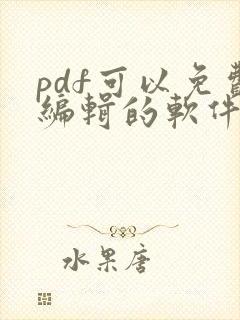 pdf可以免費
編輯的軟件
水果唐